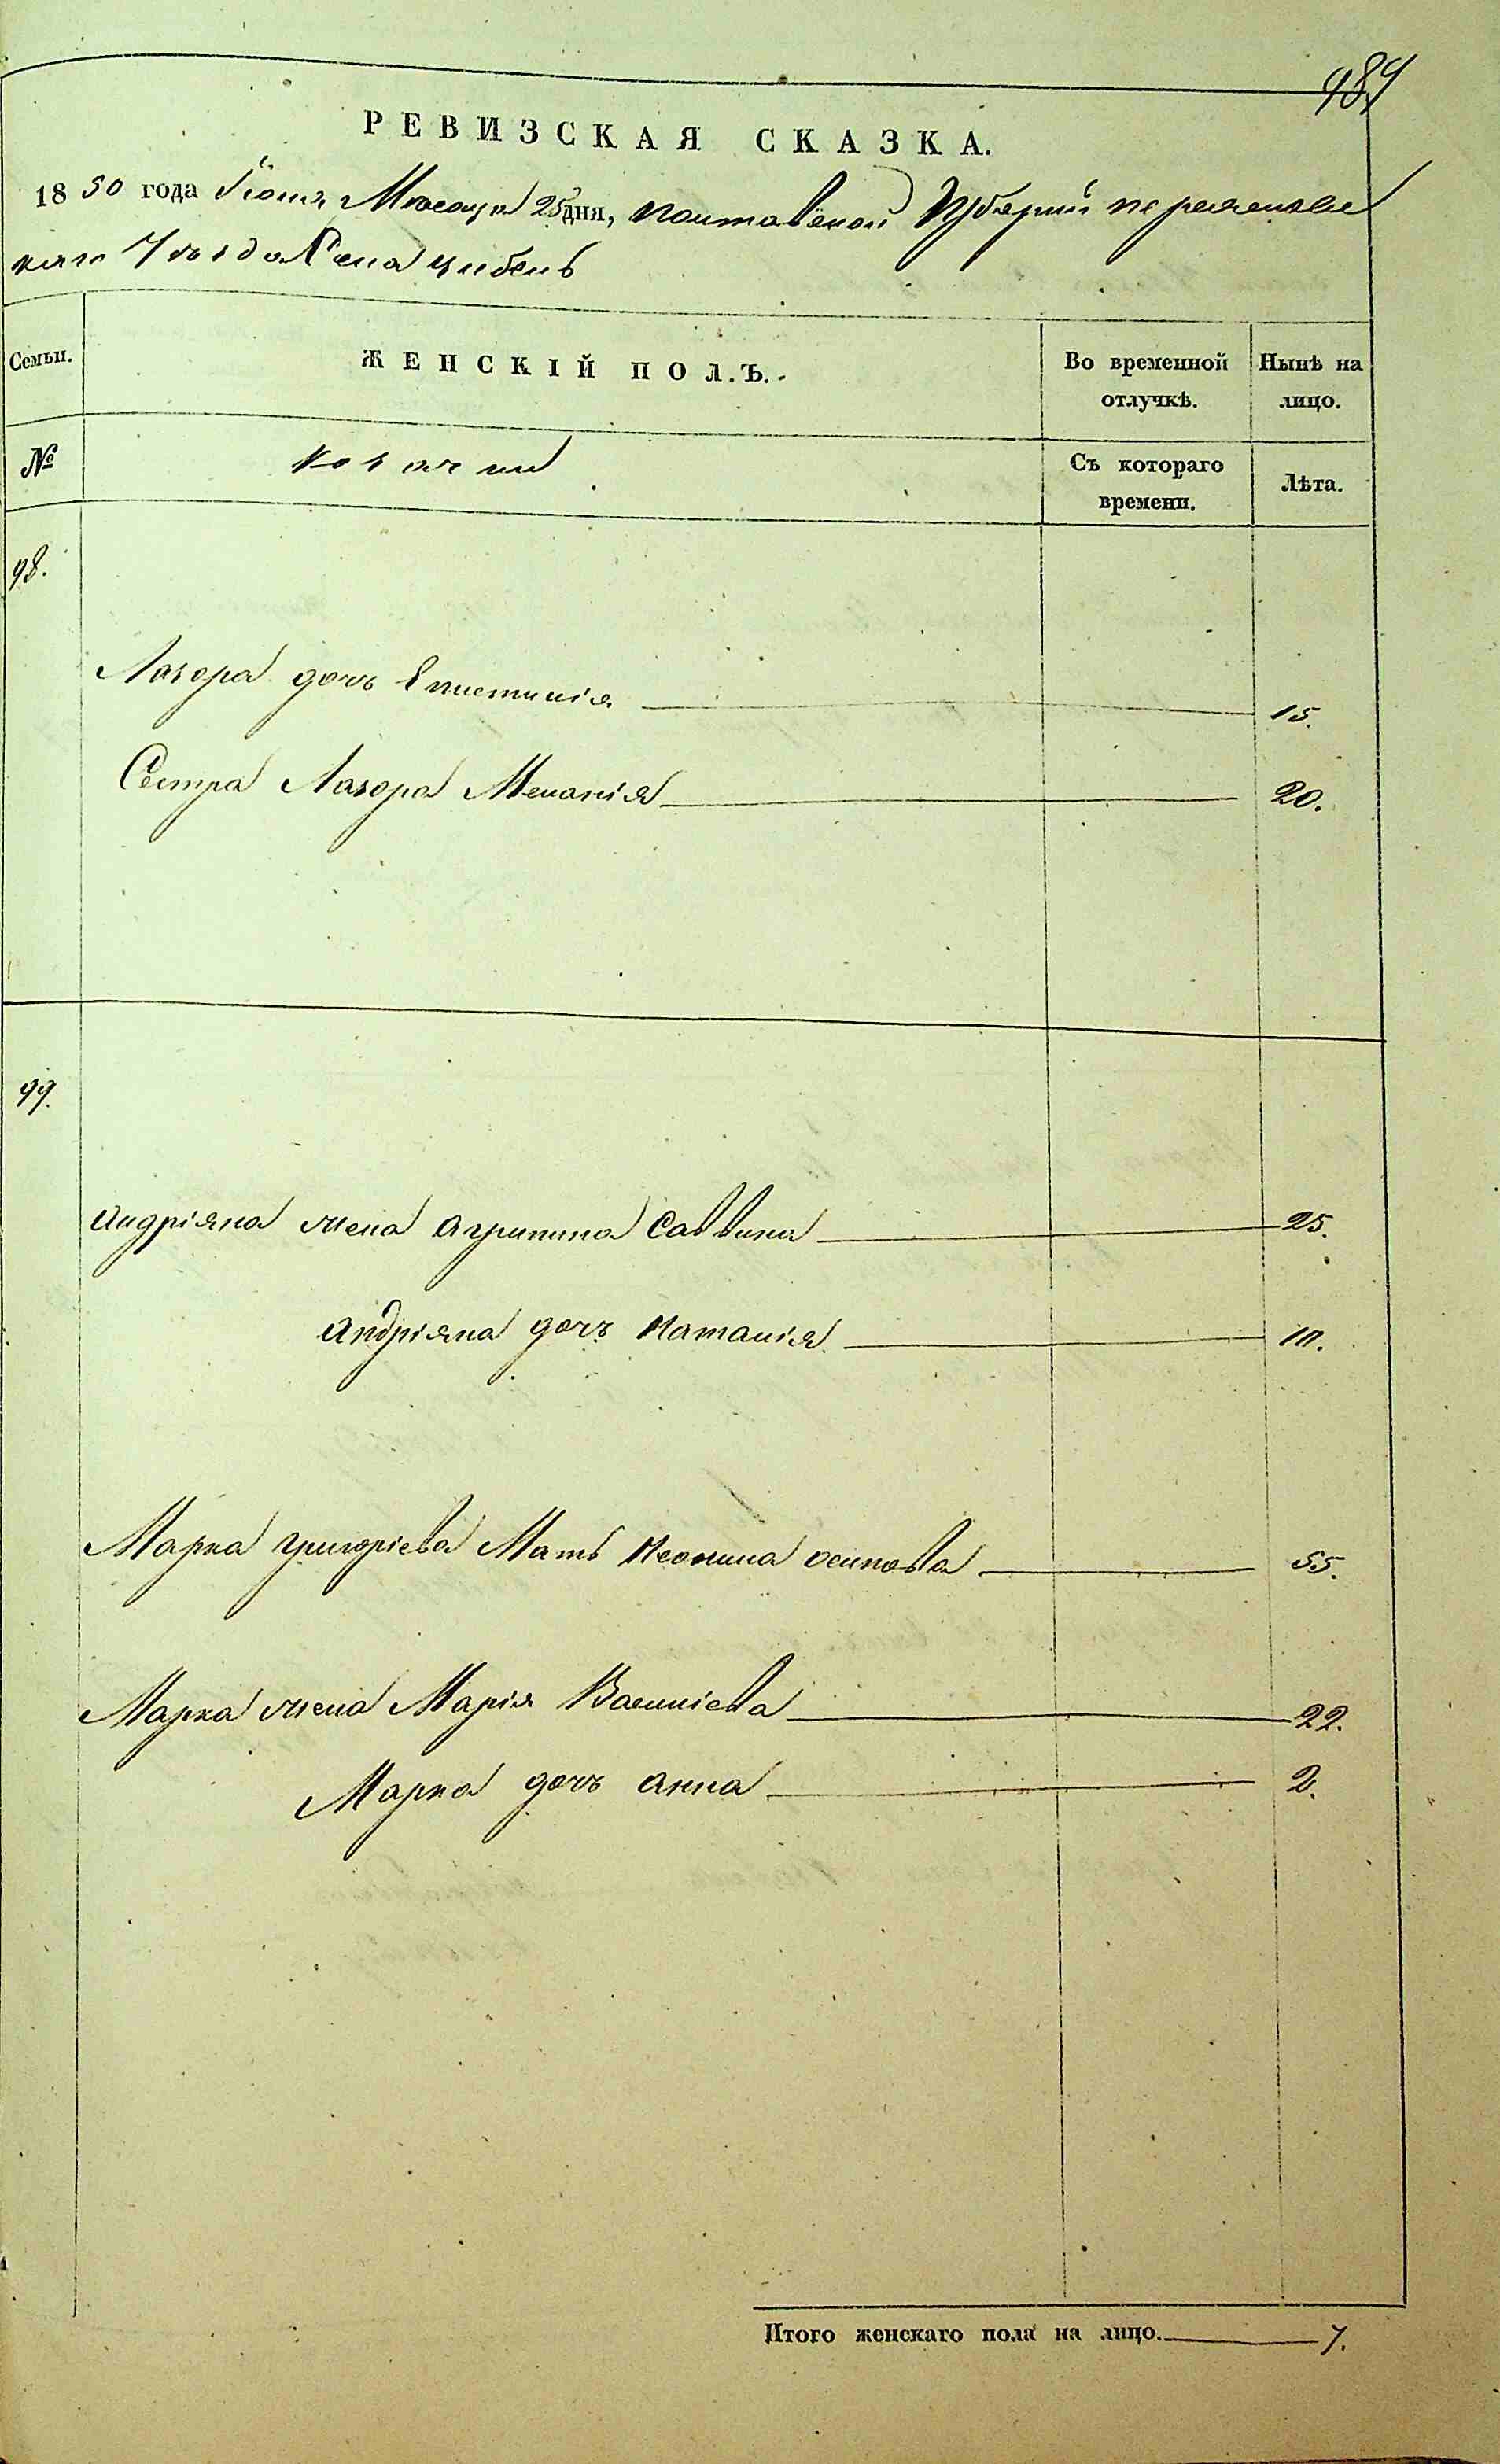 484
РЕВИЗСКАЯ СКАЗКА.
1850 года Іюня Месяца 25 дня, Полтавской Губерніи Переяслав
каго Уезда Села Цибель
Семьи.
ЖЕНСКІЙ ПОЛЪ.
Во временной отлучкѣ.
Нынѣ на лицо.
№
Козачки
Съ котораго времени.
Лѣта.
98.
Лазора дочь Епистимія 15.
Сестра Лазора Меланія 20.
99.
Андріяна жена Агрипина Саввина 25.
Андріяна дочь Наталія 10.
Марка Григоріева Мать Неонила Осипова 55.
Марка жена Марія Василіева 22.
Марка дочь Анна 2.
Итого женскаго пола на лицо. 7.